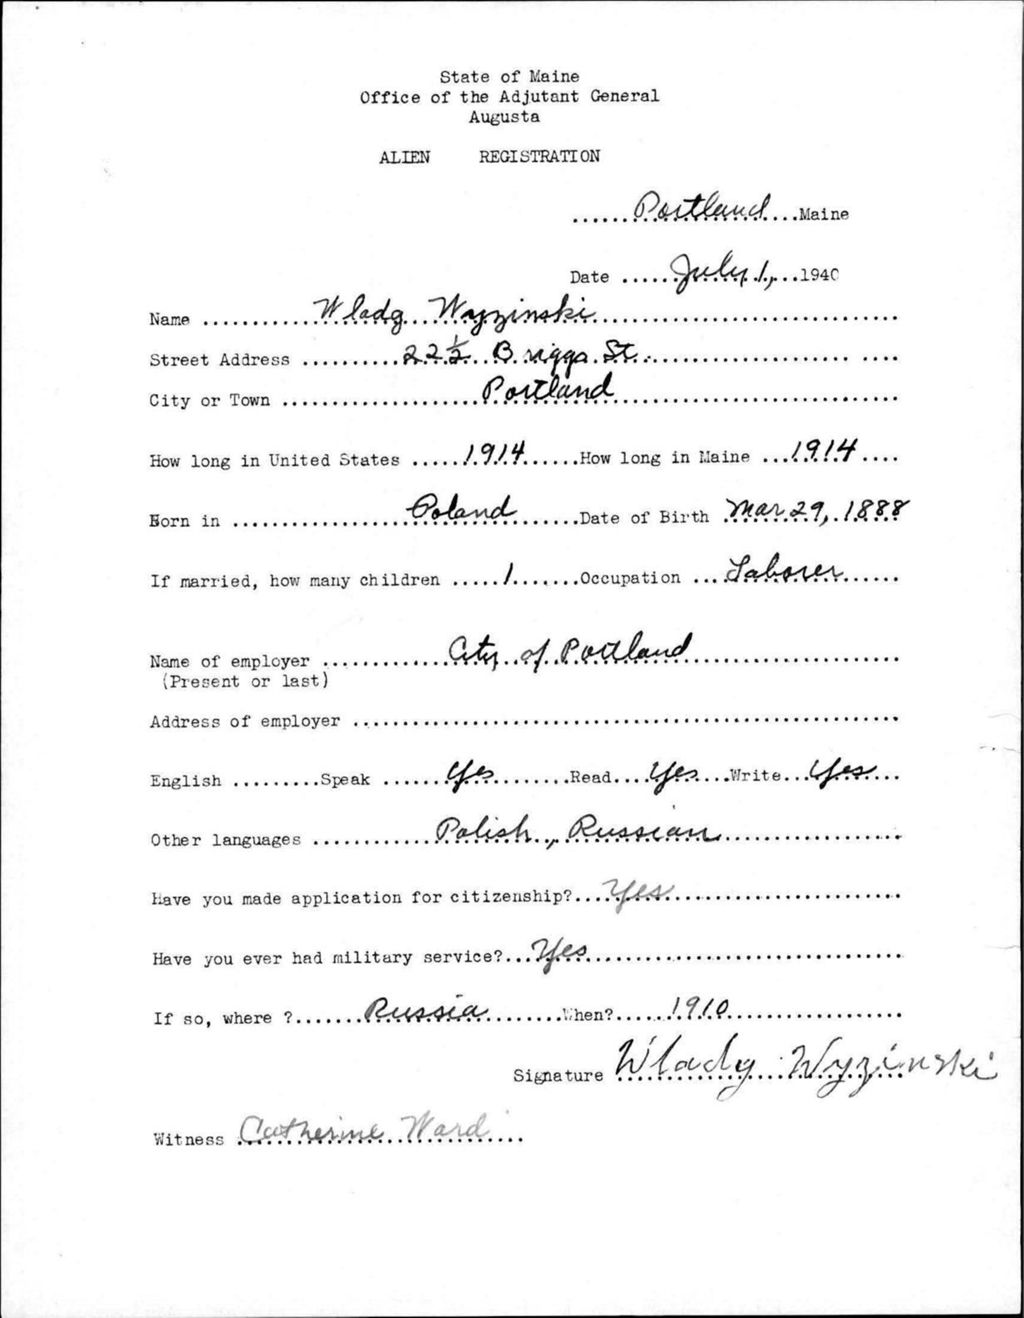 State of Maine
Office of the Adjutant General
Augusta
ALIEN REGISTRATION
......Portland....Maine
Date .....July 1,...1940
Name ...........Wladg Wyzinski..............................
Street Address ..........22½ Briggs St...................... ....
City or Town ....................Portland.............................
How long in United States .....1914......How long in Maine ...1914....
Born in ..................Poland.......Date of Birth Mar 29, 1888
If married, how many children .....1.......Occupation ...Laborer......
Name of employer .............City of Portland......................
(Present or last)
Address of employer .......................................................
English .........Speak ......Yes........Read....Yes....Write...Yes...
Other languages ............Polish, Russian..................
Have you made application for citizenship?....Yes.......................
Have you ever had military service?...Yes................................
If so, where ?.......Russia........When?......1910..................
Signature Wladg Wyzinski
Witness Catherine Ward....